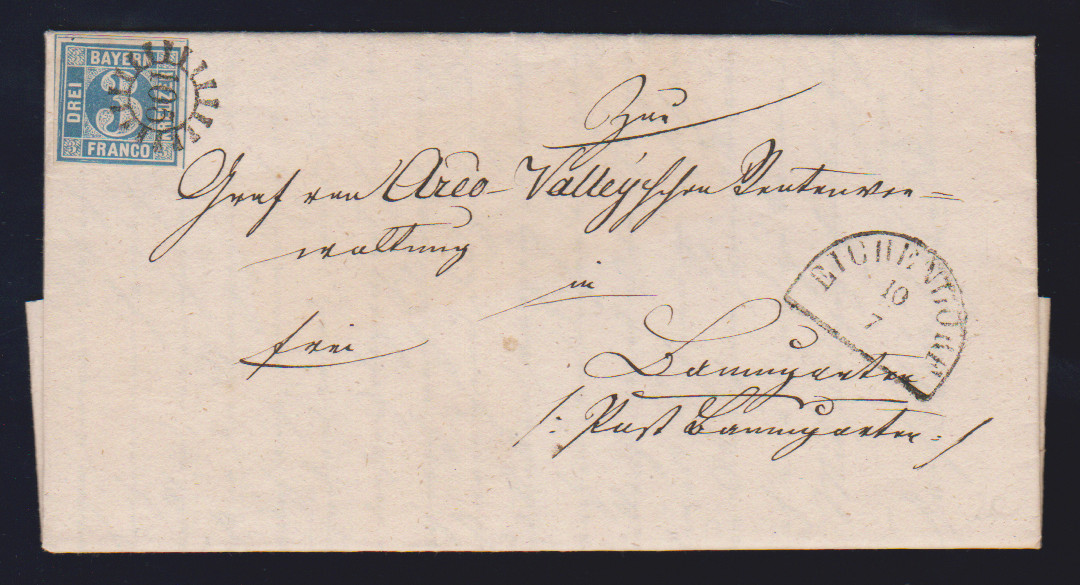 BAYERN
DREI
3
FRANCO
Zur
Graf von Arco-Valley'schen Rentenver=
waltung
in
frei
Baumgarten
/: Post Baumgarten :/
EICHENDORF
10
7